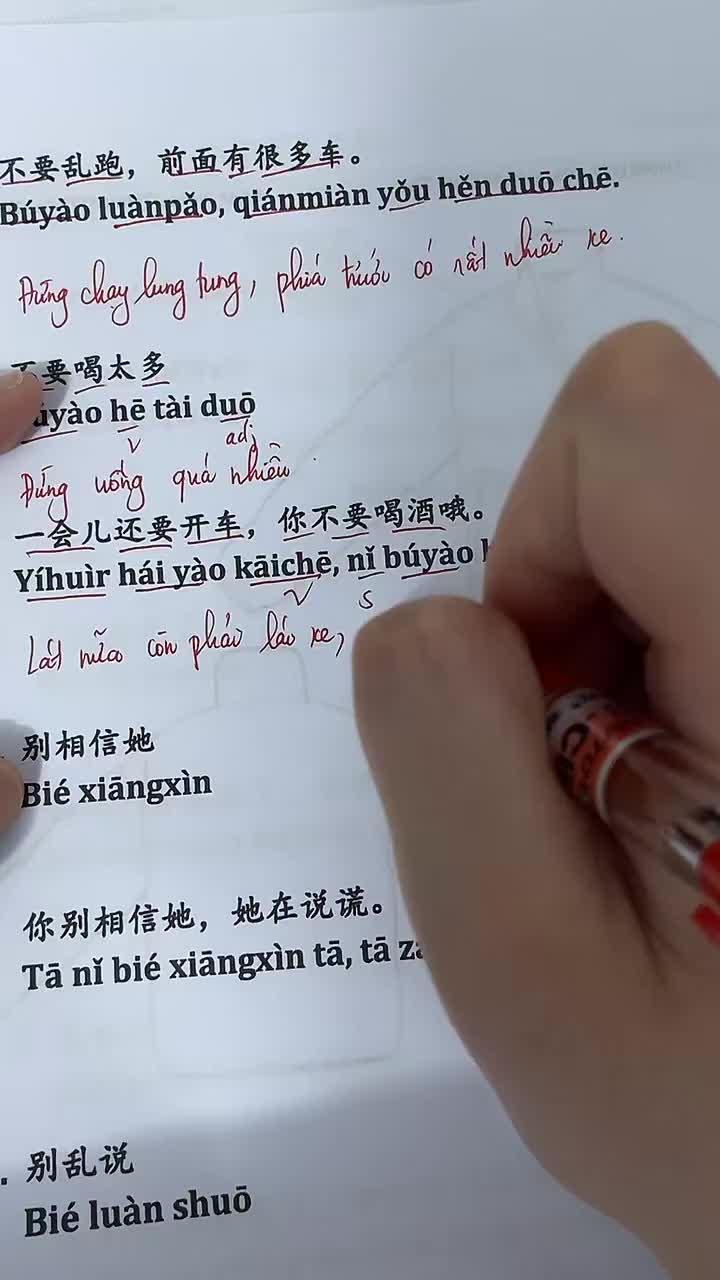 不要乱跑，前面有很多车。
Búyào luànpǎo, qiánmiàn yǒu hěn duō chē.
Đừng chạy lung tung, phiá trước có rất nhiều xe.
要喝太多
yào hē tài duō
v adj
Đừng uống quá nhiều.
一会儿还要开车，你不要喝酒哦。
Yíhuìr hái yào kāichē, nǐ búyào
v s
Lát nữa còn phải lái xe,
别相信她
Bié xiāngxìn
你别相信她，她在说谎。
Tā nǐ bié xiāngxìn tā, tā
别乱说
Bié luàn shuō